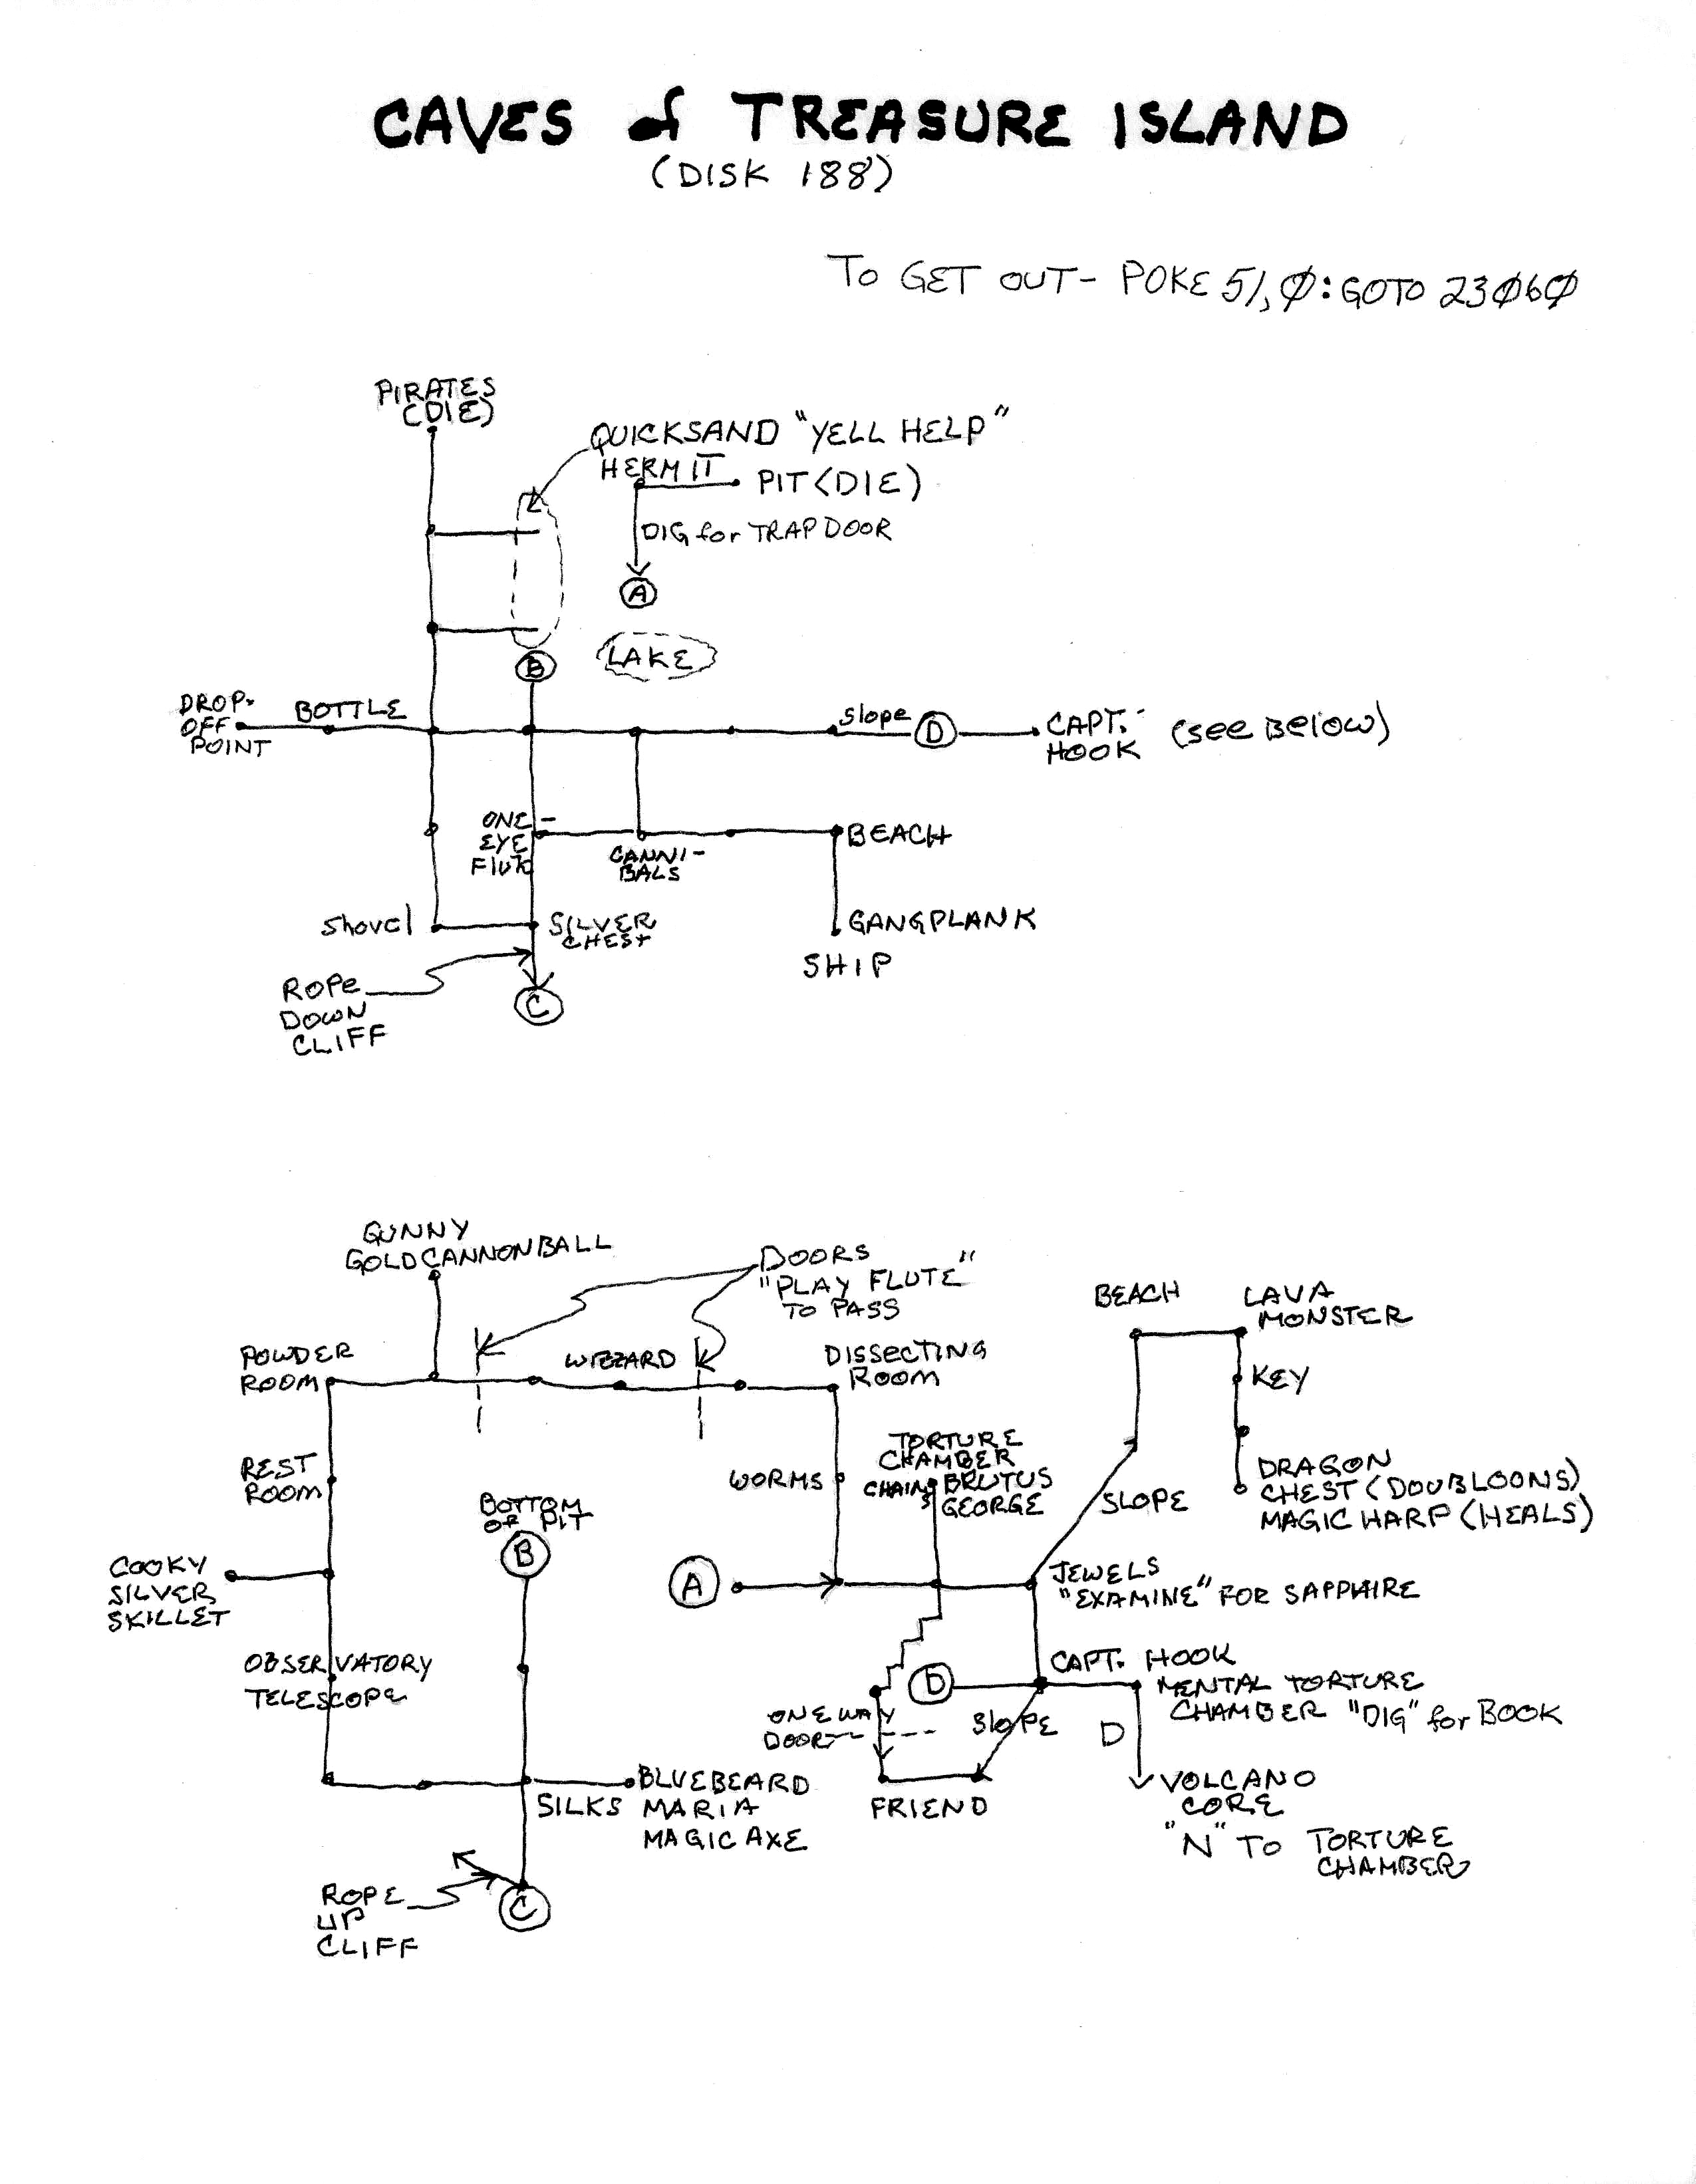 CAVES of TREASURE ISLAND
(DISK 188)
TO GET OUT- POKE 51,0:GOTO 23060
PIRATES
(DIE)
QUICKSAND "YELL HELP"
HERMIT
PIT(DIE)
DIG for TRAPDOOR
A
LAKE
B
DROP-
OFF
POINT
BOTTLE
Slope
D
CAPT.
HOOK
(see BElow)
ONE-
EYE
Flute
CANNI-
BALS
BEACH
Shovel
SILVER
CHEST
GANGPLANK
SHIP
ROPE
DOWN
CLIFF
C
GUNNY
GOLD CANNONBALL
DOORS
"PLAY FLUTE"
TO PASS
BEACH
LAVA
MONSTER
POWDER
ROOM
WIZZARD
DISSECTING
ROOM
KEY
REST
ROOM
WORMS
TORTURE
CHAMBER
CHAINS
BRUTUS
GEORGE
SLOPE
DRAGON
CHEST (DOUBLOONS)
MAGIC HARP (HEALS)
BOTTOM
OF PIT
B
COOKY
SILVER
SKILLET
A
JEWELS
"EXAMINE" FOR SAPPHIRE
OBSERVATORY
TELESCOPE
D
CAPT. HOOK
MENTAL TORTURE
CHAMBER "DIG" for BOOK
ONE WAY
DOOR
SlOPE
D
SILKS
BLUEBEARD
MARIA
MAGIC AXE
FRIEND
VOLCANO
CORE
"N" TO TORTURE
CHAMBER
ROPE
UP
CLIFF
C